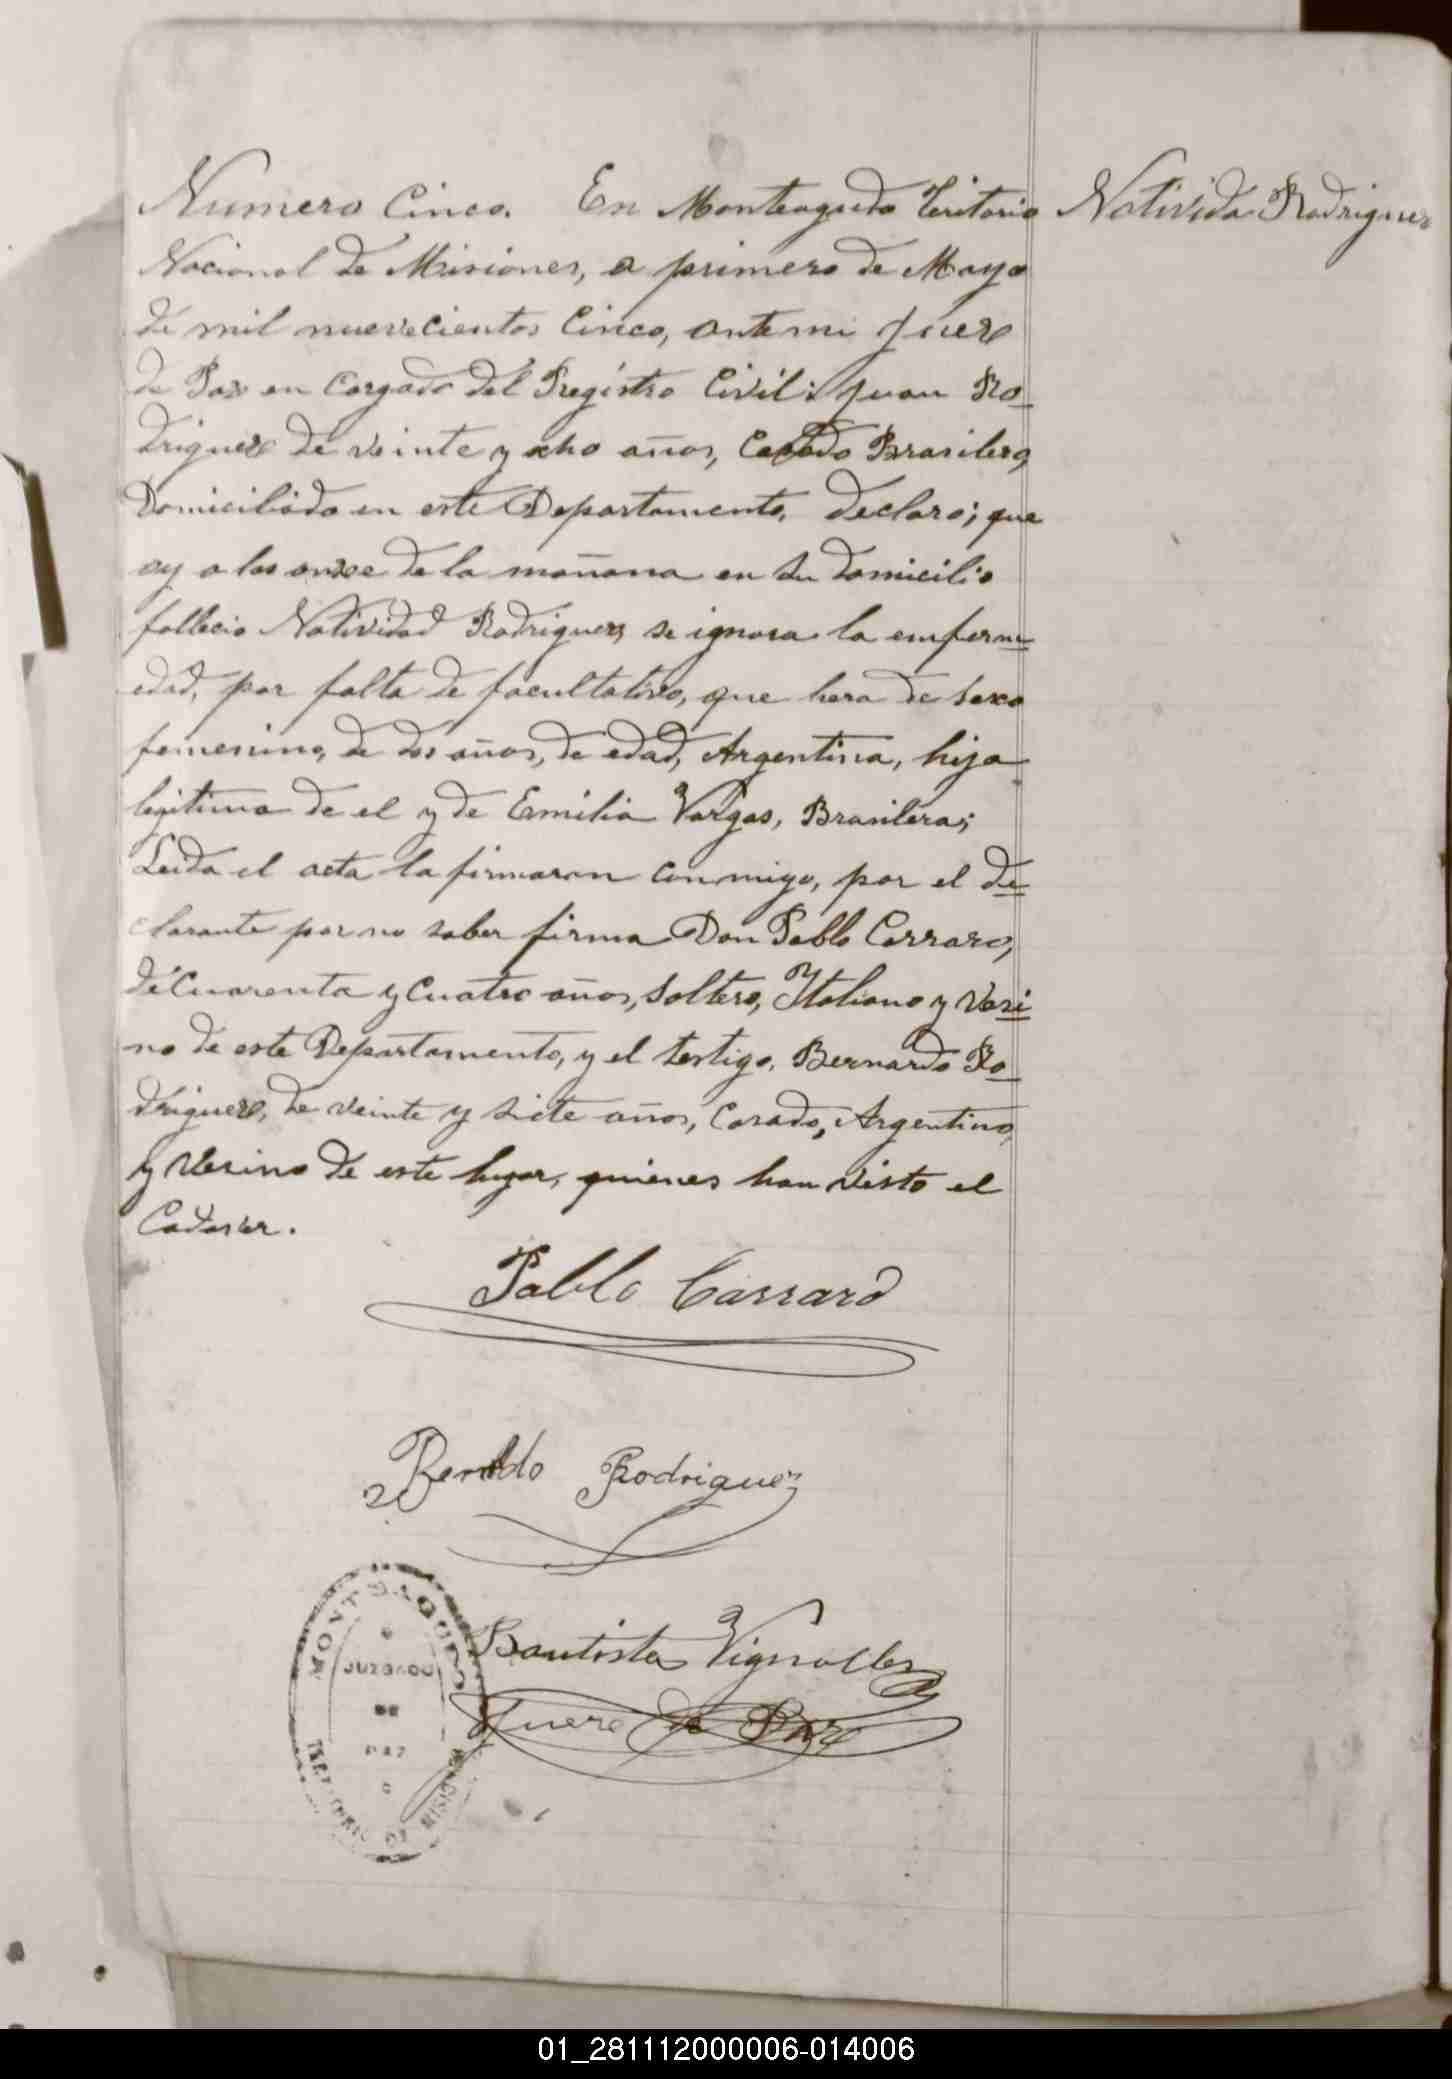 Numero Cinco. En Monteagudo Teritorio
Natividad Rodriguez
Nacional de Misiones, a primero de Mayo
de mil nuevecientos Cinco, ante mi Juez
de Paz en Cargado del Registro Civil: Juan Ro-
driguez de veinte y ocho años, Casado Brasilero,
Domiciliado en este Departamento, declaro; que
oy a las onze de la mañana en su domicilio
fallecio Natividad Rodriguez, se ignora la enferm-
edad, por falta de facultativo, que hera de sexo
femenino, de dos años, de edad, Argentina, hija
legitima de el y de Emilia Vargas, Brasilera;
Leida el acta la firmaron conmigo, por el de-
clarante por no saber firma Don Pablo Carraro,
de Cuarenta y Cuatro años, soltero, Italiano y Vesi-
no de este Departamento, y el testigo, Bernardo Ro-
driguez, de veinte y siete años, Casado, Argentino,
y Vesino de este lugar, quienes han visto el
Cadaver.
Pablo Carraro
Rodriguez
Bautista
Juez de Paz
MONTEAGUDO
JUZGADO
DE
PAZ
01_281112000006-014006